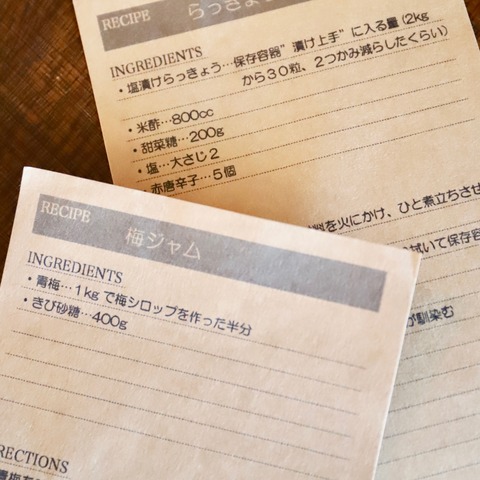 RECIPE らっきょ
INGREDIENTS
・塩漬けらっきょう…保存容器”漬け上手”に入る量(2kg
から30粒、2つかみ減らしたくらい)
・米酢…800cc
・甜菜糖…200g
・塩…大さじ2
・赤唐辛子…5個
を火にかけ、ひと煮立ちさせ
拭いて保存容
が馴染む
RECIPE 梅ジャム
INGREDIENTS
・青梅…1kgで梅シロップを作った半分
・きび砂糖…400g
RECTIONS